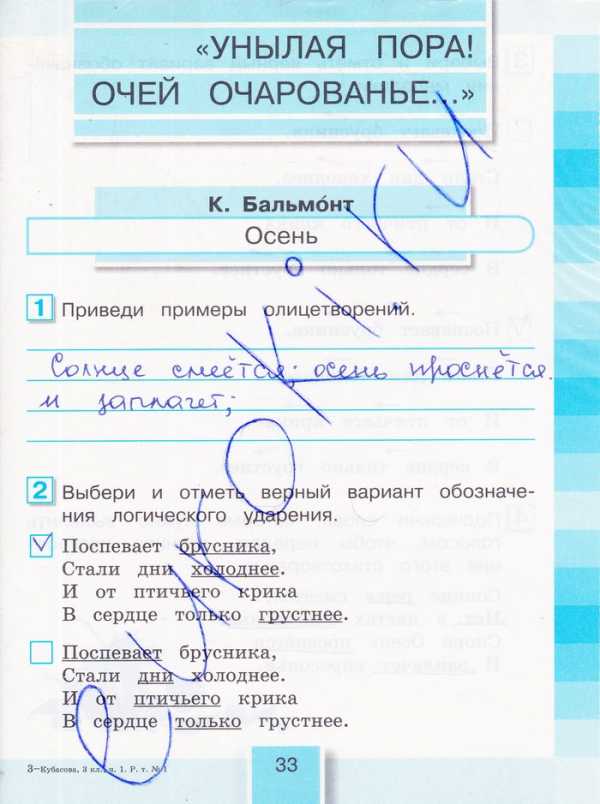 «УНЫЛАЯ ПОРА!
ОЧЕЙ ОЧАРОВАНЬЕ...»
К. Бальмо́нт
Осень
1 Приведи примеры олицетворений.
Солнце смеётся; осень проснётся
и заплачет;
2 Выбери и отметь верный вариант обозначе-
ния логического ударения.
Поспевает брусника,
Стали дни холоднее.
И от птичьего крика
В сердце только грустнее.
Поспевает брусника,
Стали дни холоднее.
И от птичьего крика
В сердце только грустнее.
3–Кубасова, 3 кл., ч. 1. Р. т. № 1
33